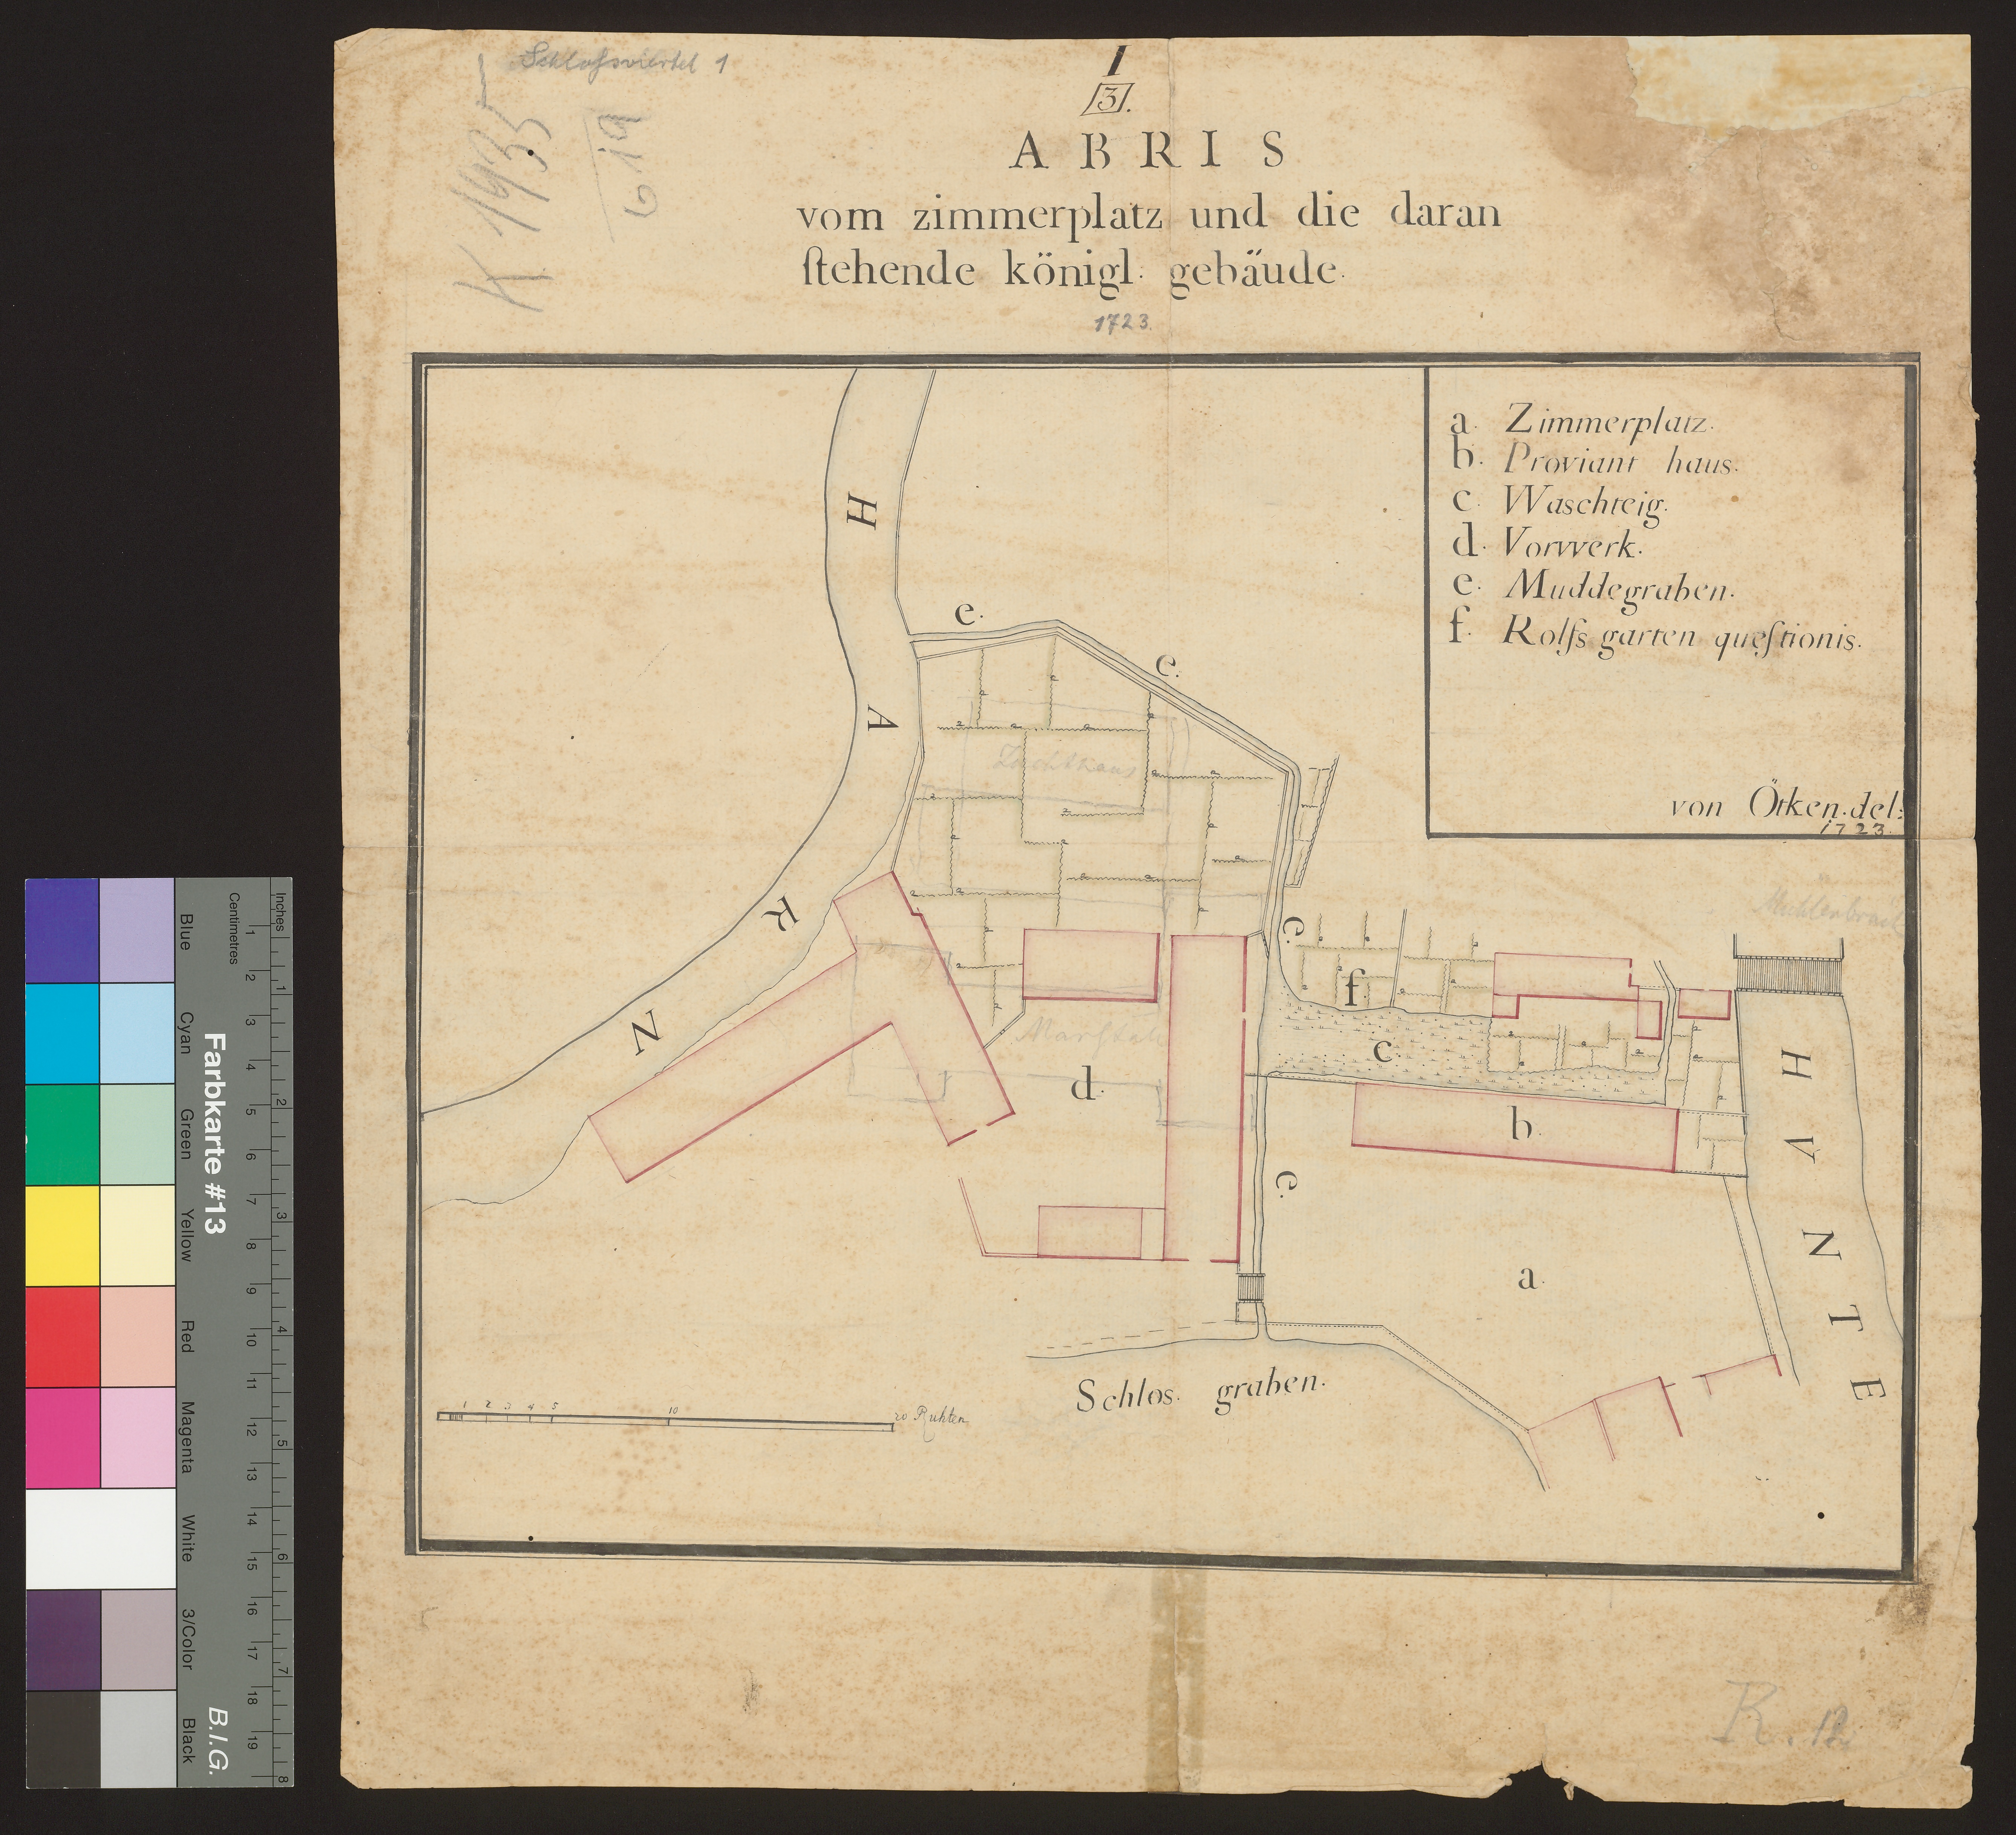 Schlossviertel 1
K 1935
619
I
3.
ABRIS
vom zimmerplatz und die daran
ſtehende königl. gebäude.
1723.
a. Zimmerplatz.
b. Proviant haus.
c. Waschteig.
d. Vorwerk.
e. Muddegraben.
f. Rolfs garten queſtionis.
von Ötken. del:
1723.
HARZ
e.
e.
Zuchthaus
e.
f.
c.
Marſtall
d.
b.
e.
a.
HVNTE
Schlos. graben.
1 2 3 4 5 10 20 Ruhten
R.
Inches
Centimetres
1 2 3 4 5 6 7 8
1 2 3 4 5 6 7 8 9 10 11 12 13 14 15 16 17 18 19
Farbkarte #13
B.I.G.
Blue
Cyan
Green
Yellow
Red
Magenta
White
3/Color
Black